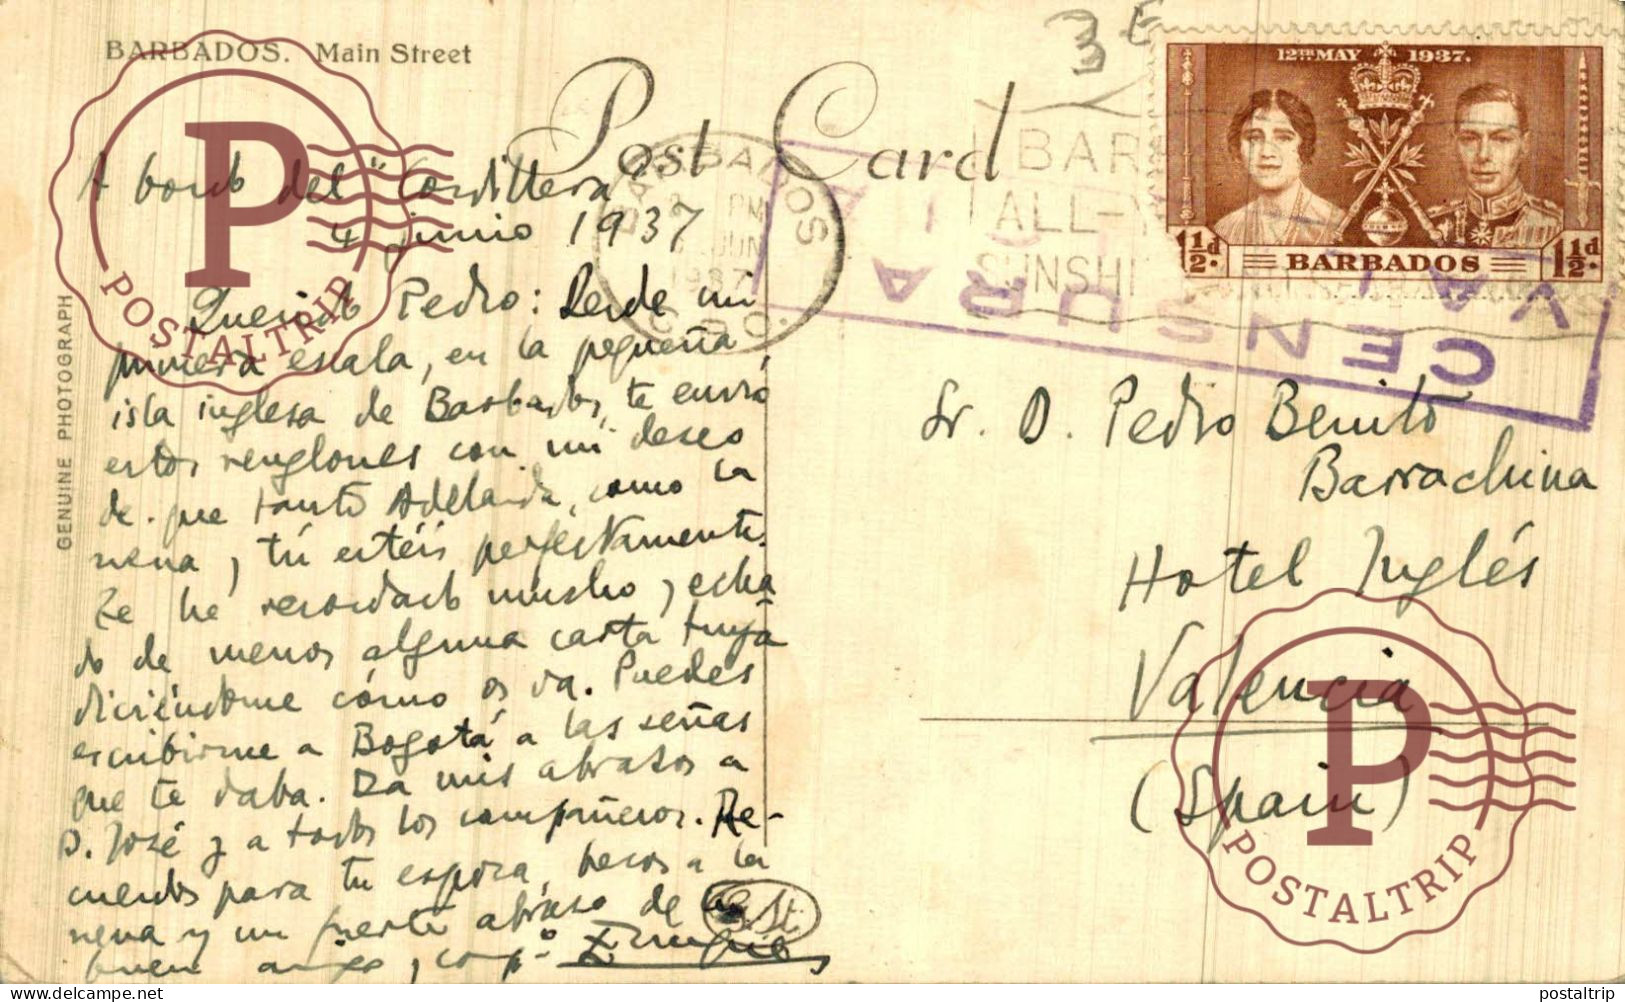 BARBADOS. Main Street
Post Card
GENUINE PHOTOGRAPH
3 E
12TH MAY 1937.
1½d. BARBADOS 1½d.
BARBADOS
PM
JUN
1937
G.P.O.
BAR
ALL-
SUNSHI
CENSURA
A bordo del "Cordillera
4 junio 1937
Querido Pedro: Desde mi
primera escala, en la pequeña
isla inglesa de Barbados, te envío
estos renglones con mi deseo
de que tanto Adelaida, como la
nena y tú estéis perfectamente.
Te he recordado mucho y echa
do de menos alguna carta tuya
diciéndome cómo os va. Puedes
escribirme a Bogotá a las señas
que te daba. Da mis abrazos a
D. José y a todos los compañeros. Re-
cuerdos para tu esposa, besos a la
nena y un fuerte abrazo de
buen amigo y comp.º
Sr. D. Pedro Benito
Barrachina
Hotel Inglés
Valencia
(Spain)
P
POSTALTRIP
P
POSTALTRIP
postaltrip postaltrip